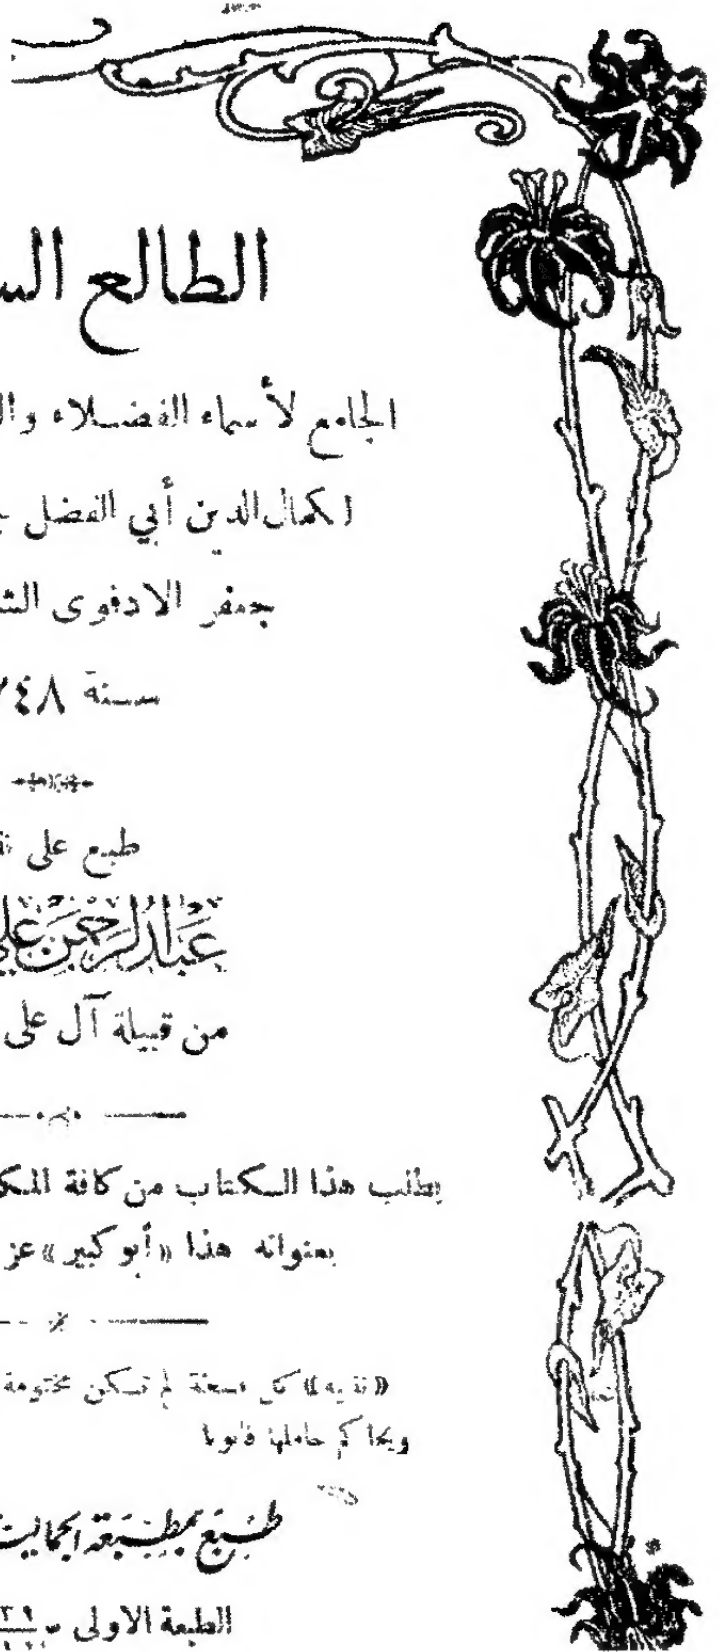 الطالع الس
الجامع لأسماء الفضلاء وال
لكمال الدين أبي الفضل
جعفر الادفوى الش
سنة ٧٤٨
طبع على
عبد الرحمن علي
من قبيلة آل على
يطلب هذا الكتاب من كافة المك
بعنوانه هذا «أبو كبير» عز
«تنبيه» كل نسخة لم تكن مختومة
ويحاكم حاملها قانونا
طبع بمطبعة الجمالية
الطبعة الاولى